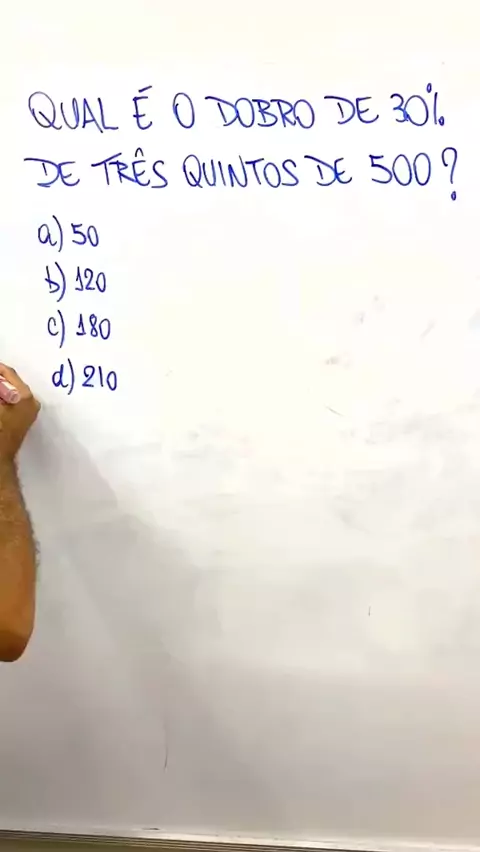 QUAL É O DOBRO DE 30%
DE TRÊS QUINTOS DE 500?
a) 50
b) 120
c) 180
d) 210